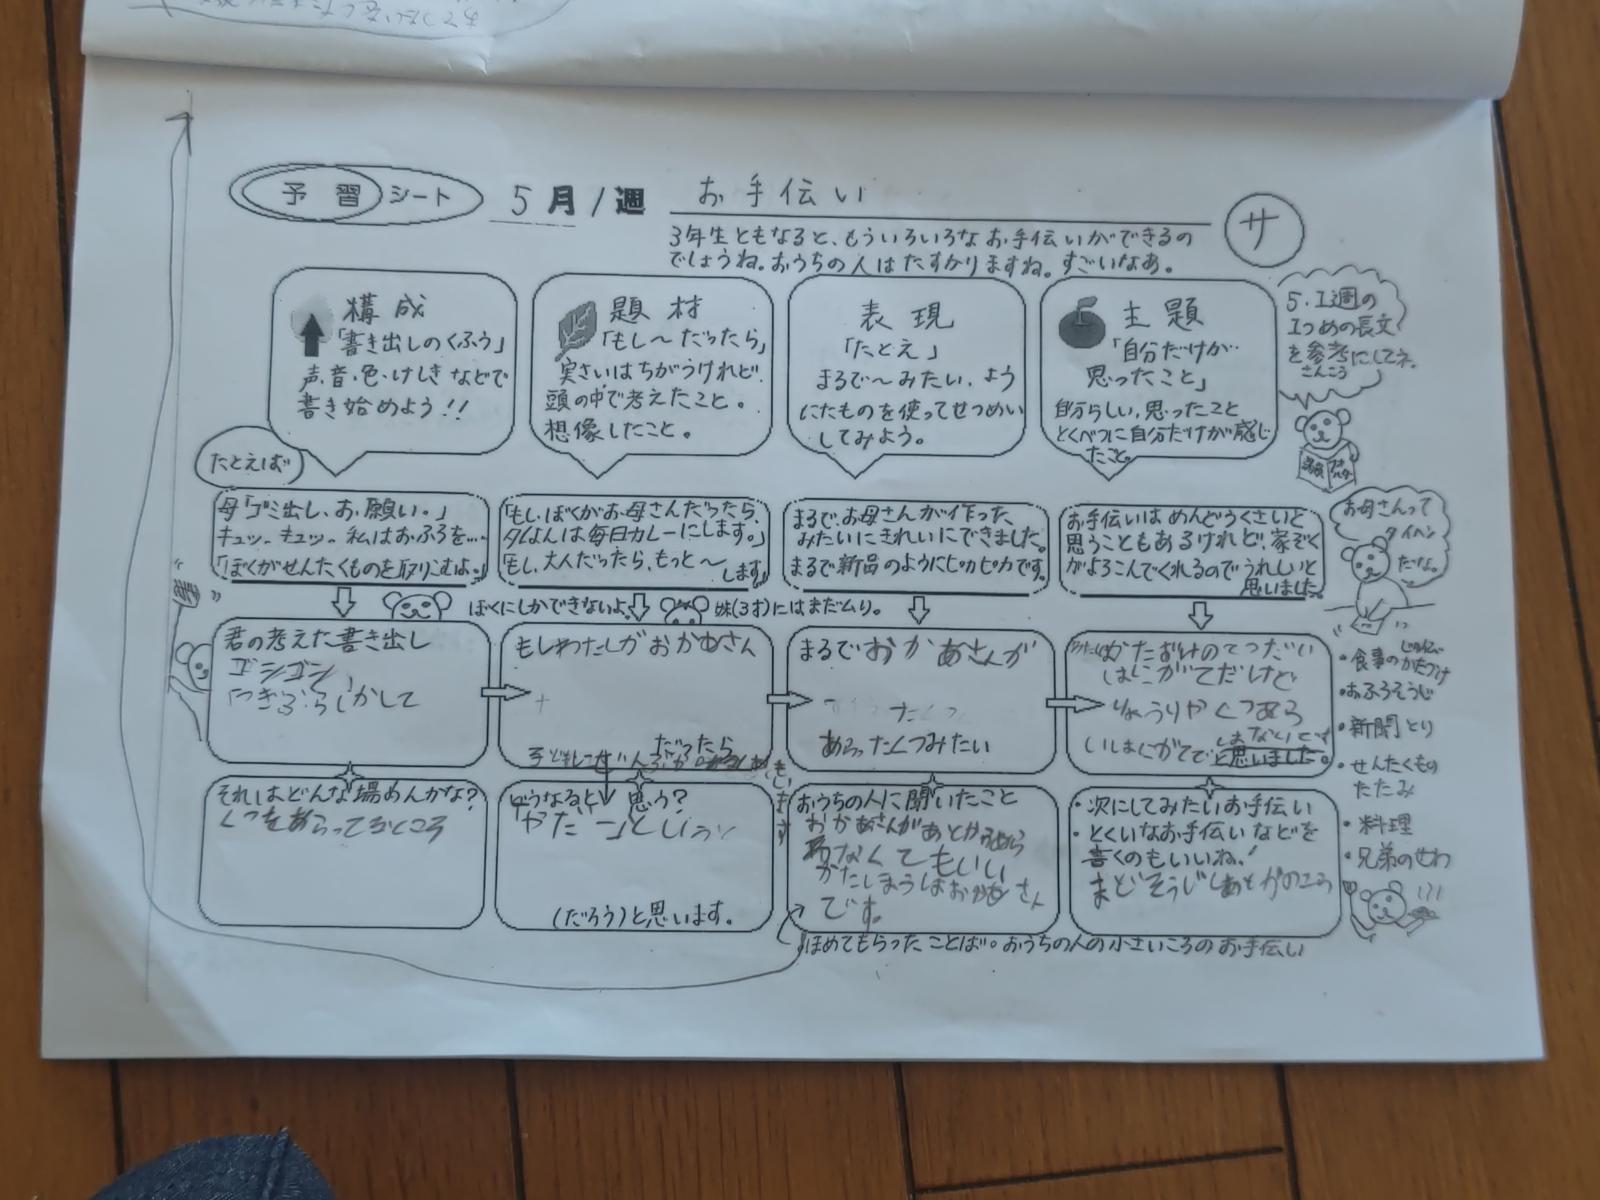 予習シート 5月1週 お手伝い
サ
3年生ともなると、もういろいろなお手伝いができるの
でしょうね。おうちの人はたすかりますね。すごいなあ。
構成
「書き出しのくふう」
声・音・色・けしきなどで
書き始めよう!!
題材
「もし〜だったら」
実さいはちがうけれど、
頭の中で考えたこと。
想像したこと。
表現
「たとえ」
まるで〜みたい、よう
にたものを使ってせつめい
してみよう。
主題
「自分だけが
思ったこと」
自分らしい、思ったこと
とくべつに自分だけが感じ
たこと。
5.1週の
1つめの長文
を参考にしてネ。
さんこう
たとえば
母「ゴミ出し、お願い。」
キュッ、キュッ、私はおふろを…
「ぼくがせんたくものを取りこむよ。」
「もし、ぼくがお母さんだったら、
夕はんは毎日カレーにします。」
「もし、大人だったら、もっと〜
します」
まるで、お母さんが作った
みたいにきれいにできました。
まるで新品のようにピカピカです。
お手伝いはめんどうくさいと
思うこともあるけれど、家ぞく
がよろこんでくれるのでうれしいと
思いました。
お母さんって
タイヘン
だな。
ぼくにしかできないよ。
妹(3才)にはまだムリ。
君の考えた書き出し
ゴシゴシ
もしわたしがおかあさん
だったら
まるでおかあさんが
あらったくつみたい
かたづけのてつだい
はにがてだけど
りょうりやくつあら
いはにがてで
はないです
と思いました。
それはどんな場めんかな?
くつをあらってるところ
どうなると思う?
「やだー」という
(だろう)と思います。
おうちの人に聞いたこと
おかあさんがあとから
なくてもいい
です。
・次にしてみたいお手伝い
・とくいなお手伝いなどを
書くのもいいね!
まどそうじ
ほめてもらったことば。おうちの人の小さいころのお手伝い
・食事のかたづけ
・おふろそうじ
・新聞とり
・せんたくもの
たたみ
・料理
・兄弟のせわ